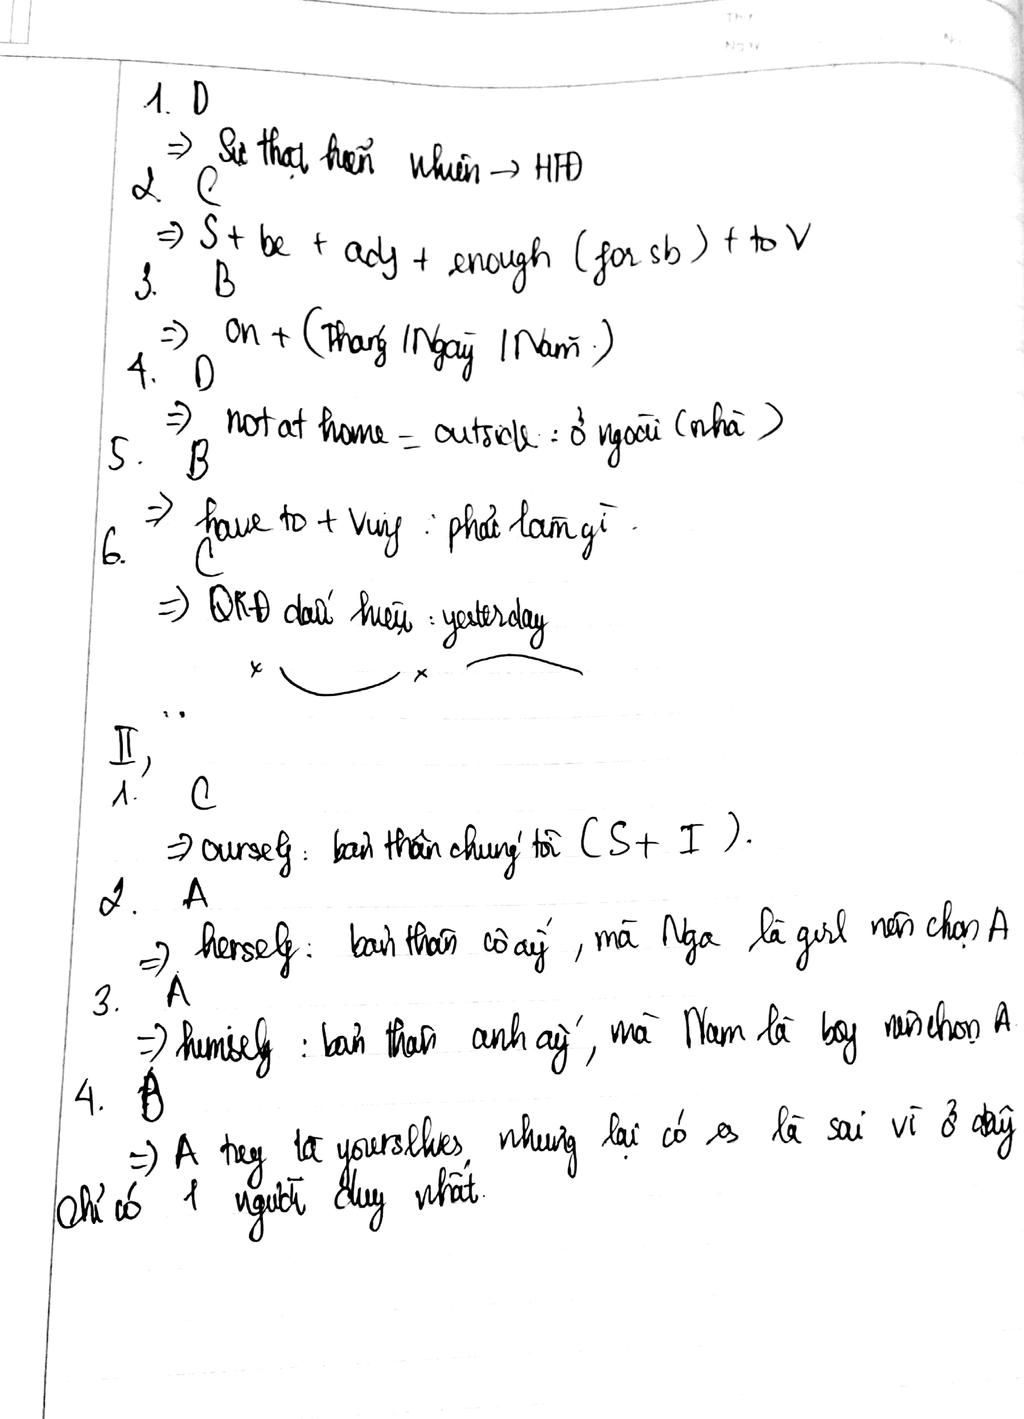 1. D
=> Sự thật hiển nhiên → HTĐ
2. C
=> S + be + adj + enough (for sb) + to V
3. B
=> on + (Tháng / Ngày / Năm.)
4. D
=> not at home = outside : ở ngoài (nhà)
5. B
=> have to + Ving : phải làm gì.
6. C
=> QKĐ dấu hiệu : yesterday
II,
1. C
=> ourself: bản thân chúng tôi (S + I).
2. A
=> herself: bản thân cô ấy, mà Nga là girl nên chọn A
3. A
=> himself : bản thân anh ấy, mà Nam là boy nên chọn A
4. B
=> A là yourslves, nhưng lại có es là sai vì ở đây
chỉ có 1 người duy nhất.